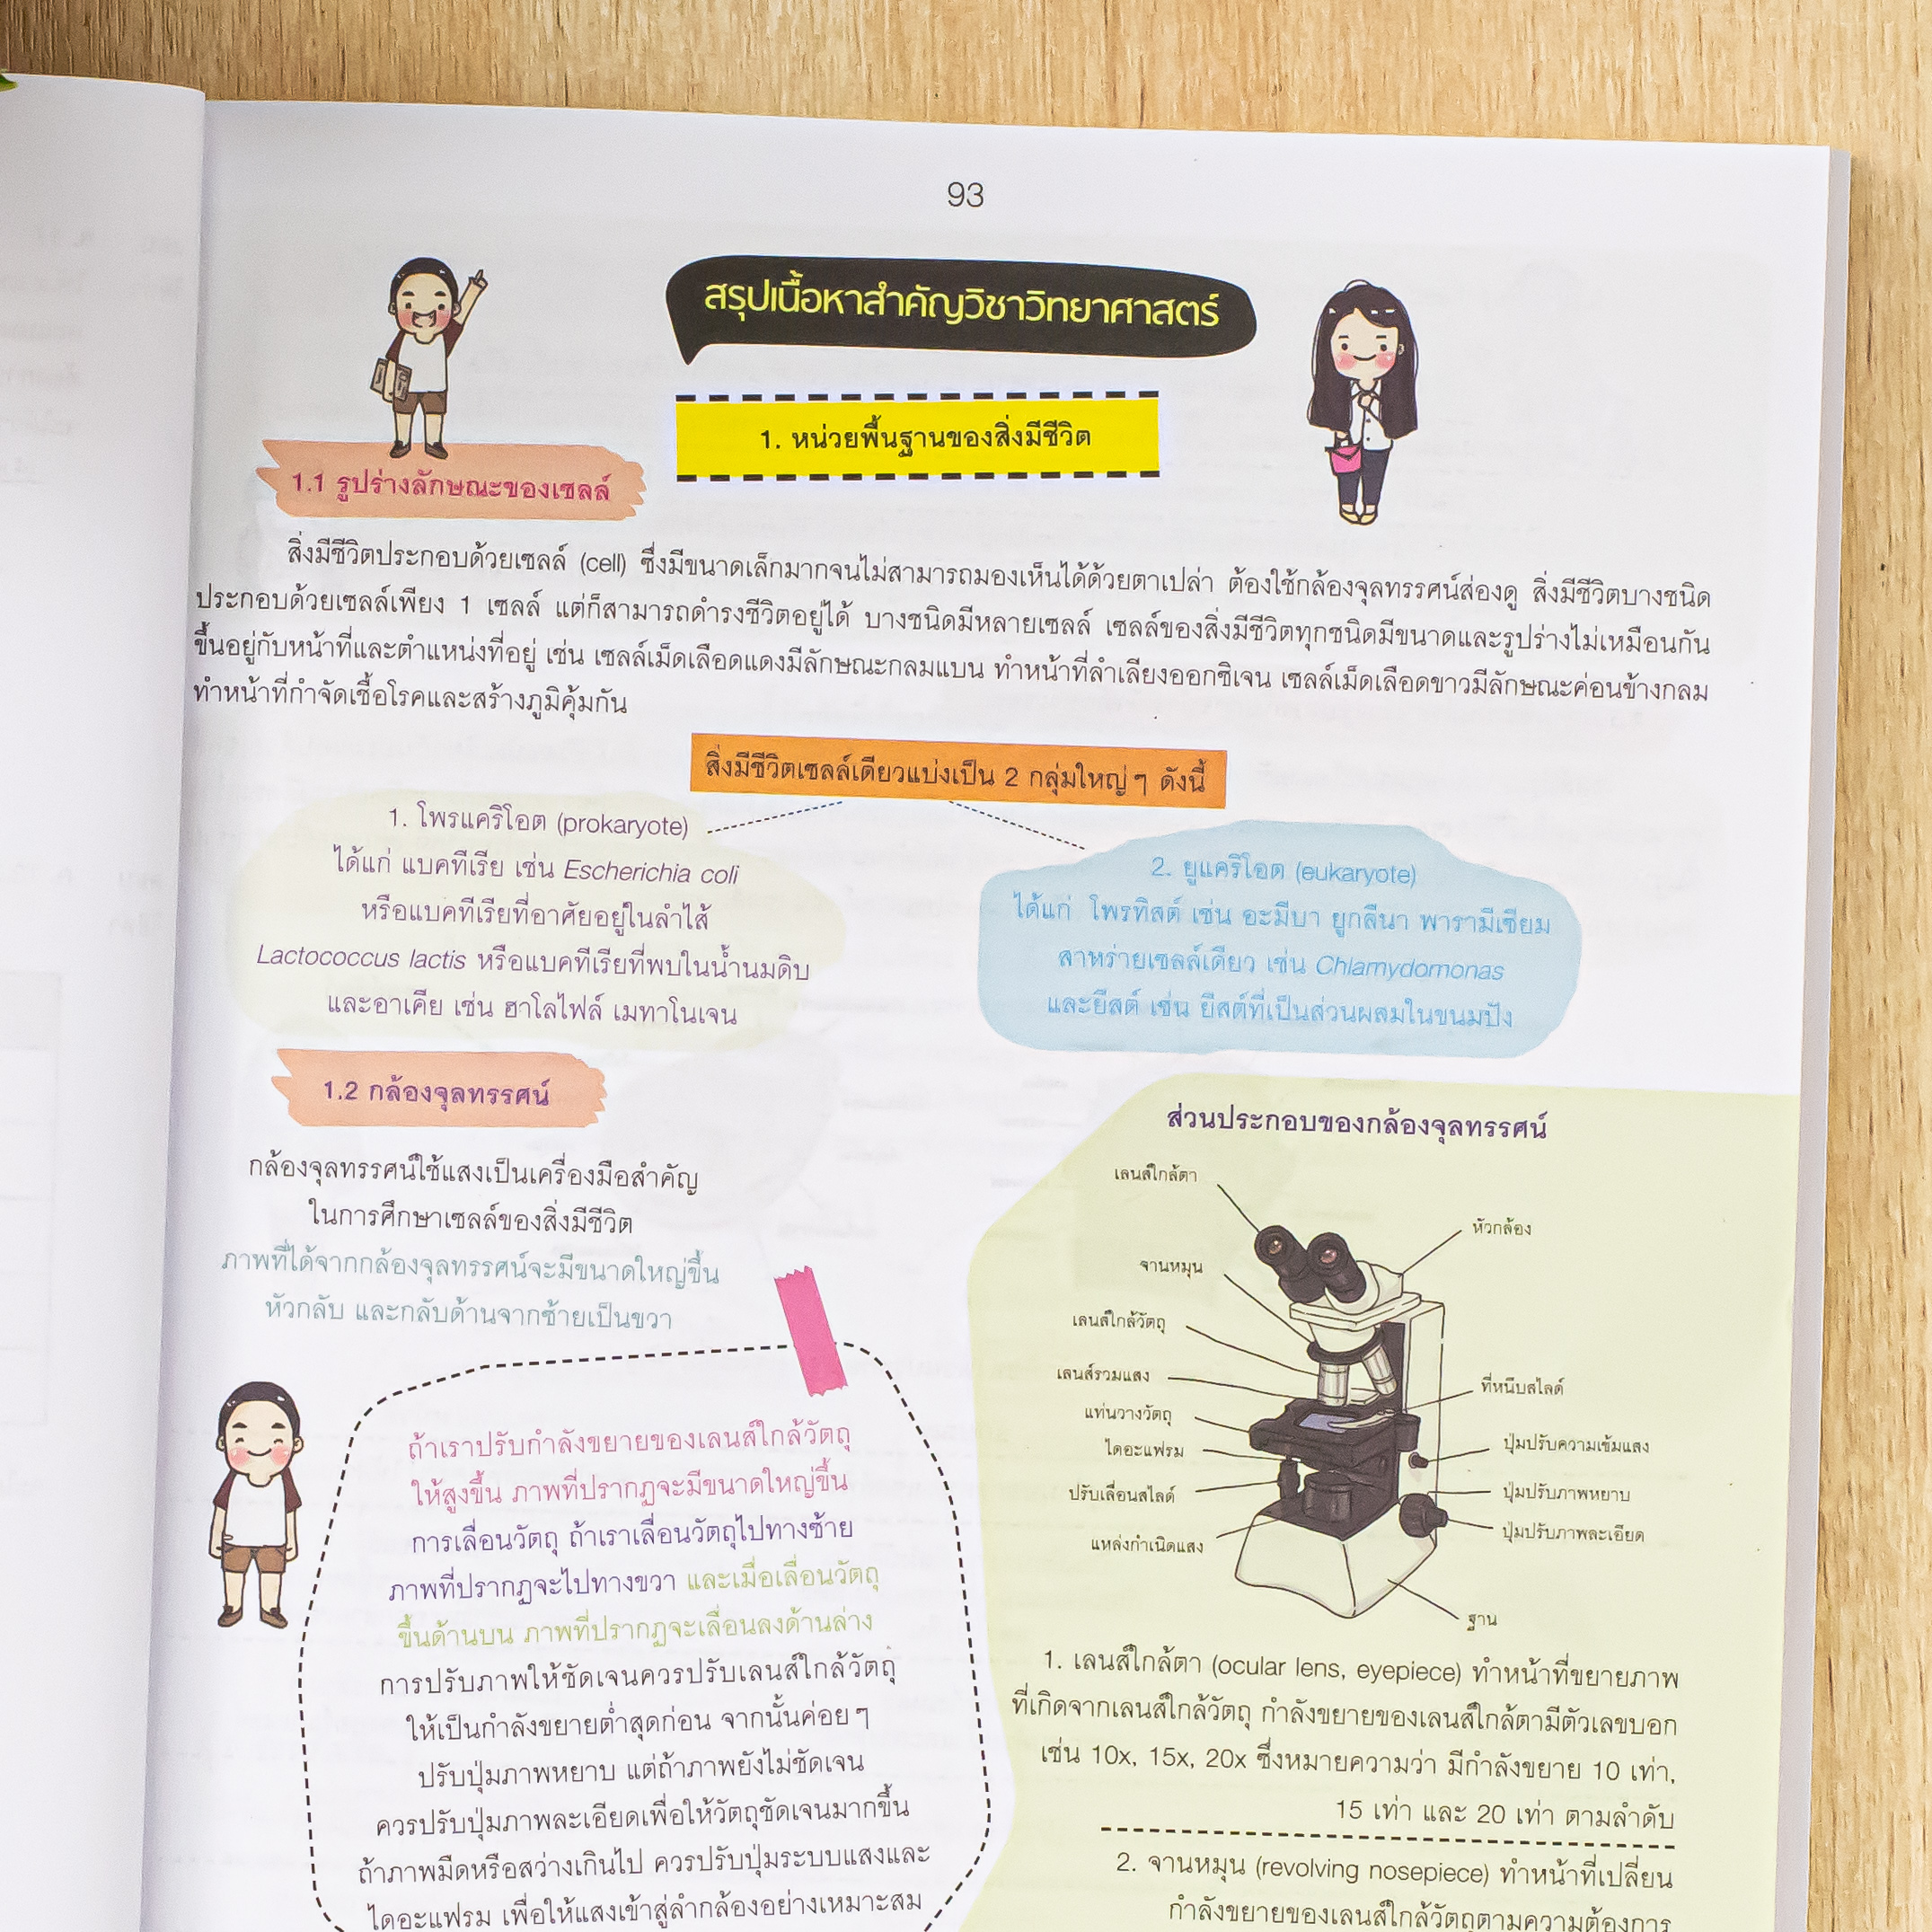 93
สรุปเนื้อหาสำคัญวิชาวิทยาศาสตร์
1. หน่วยพื้นฐานของสิ่งมีชีวิต
1.1 รูปร่างลักษณะของเซลล์
สิ่งมีชีวิตประกอบด้วยเซลล์ (cell) ซึ่งมีขนาดเล็กมากจนไม่สามารถมองเห็นได้ด้วยตาเปล่า ต้องใช้กล้องจุลทรรศน์ส่องดู สิ่งมีชีวิตบางชนิด
ประกอบด้วยเซลล์เพียง 1 เซลล์ แต่ก็สามารถดำรงชีวิตอยู่ได้ บางชนิดมีหลายเซลล์ เซลล์ของสิ่งมีชีวิตทุกชนิดมีขนาดและรูปร่างไม่เหมือนกัน
ขึ้นอยู่กับหน้าที่และตำแหน่งที่อยู่ เช่น เซลล์เม็ดเลือดแดงมีลักษณะกลมแบน ทำหน้าที่ลำเลียงออกซิเจน เซลล์เม็ดเลือดขาวมีลักษณะค่อนข้างกลม
ทำหน้าที่กำจัดเชื้อโรคและสร้างภูมิคุ้มกัน
สิ่งมีชีวิตเซลล์เดียวแบ่งเป็น 2 กลุ่มใหญ่ ๆ ดังนี้
1. โพรแคริโอต (prokaryote)
ได้แก่ แบคทีเรีย เช่น Escherichia coli
หรือแบคทีเรียที่อาศัยอยู่ในลำไส้
Lactococcus lactis หรือแบคทีเรียที่พบในน้ำนมดิบ
และอาเคีย เช่น ฮาโลไฟล์ เมทาโนเจน
2. ยูแคริโอต (eukaryote)
ได้แก่ โพรทิสต์ เช่น อะมีบา ยูกลีนา พารามีเซียม
สาหร่ายเซลล์เดียว เช่น Chlamydomonas
และยีสต์ เช่น ยีสต์ที่เป็นส่วนผสมในขนมปัง
1.2 กล้องจุลทรรศน์
กล้องจุลทรรศน์ใช้แสงเป็นเครื่องมือสำคัญ
ในการศึกษาเซลล์ของสิ่งมีชีวิต
ภาพที่ได้จากกล้องจุลทรรศน์จะมีขนาดใหญ่ขึ้น
หัวกลับ และกลับด้านจากซ้ายเป็นขวา
ถ้าเราปรับกำลังขยายของเลนส์ใกล้วัตถุ
ให้สูงขึ้น ภาพที่ปรากฏจะมีขนาดใหญ่ขึ้น
การเลื่อนวัตถุ ถ้าเราเลื่อนวัตถุไปทางซ้าย
ภาพที่ปรากฏจะไปทางขวา และเมื่อเลื่อนวัตถุ
ขึ้นด้านบน ภาพที่ปรากฏจะเลื่อนลงด้านล่าง
การปรับภาพให้ชัดเจนควรปรับเลนส์ใกล้วัตถุ
ให้เป็นกำลังขยายต่ำสุดก่อน จากนั้นค่อย ๆ
ปรับปุ่มภาพหยาบ แต่ถ้าภาพยังไม่ชัดเจน
ควรปรับปุ่มภาพละเอียดเพื่อให้วัตถุชัดเจนมากขึ้น
ถ้าภาพมืดหรือสว่างเกินไป ควรปรับปุ่มระบบแสงและ
ไดอะแฟรม เพื่อให้แสงเข้าสู่ลำกล้องอย่างเหมาะสม
ส่วนประกอบของกล้องจุลทรรศน์
เลนส์ใกล้ตา
หัวกล้อง
จานหมุน
เลนส์ใกล้วัตถุ
เลนส์รวมแสง
ที่หนีบสไลด์
แท่นวางวัตถุ
ไดอะแฟรม
ปุ่มปรับความเข้มแสง
ปรับเลื่อนสไลด์
ปุ่มปรับภาพหยาบ
แหล่งกำเนิดแสง
ปุ่มปรับภาพละเอียด
ฐาน
1. เลนส์ใกล้ตา (ocular lens, eyepiece) ทำหน้าที่ขยายภาพ
ที่เกิดจากเลนส์ใกล้วัตถุ กำลังขยายของเลนส์ใกล้ตามีตัวเลขบอก
เช่น 10x, 15x, 20x ซึ่งหมายความว่า มีกำลังขยาย 10 เท่า,
15 เท่า และ 20 เท่า ตามลำดับ
2. จานหมุน (revolving nosepiece) ทำหน้าที่เปลี่ยน
กำลังขยายของเลนส์ใกล้วัตถุตามความต้องการ